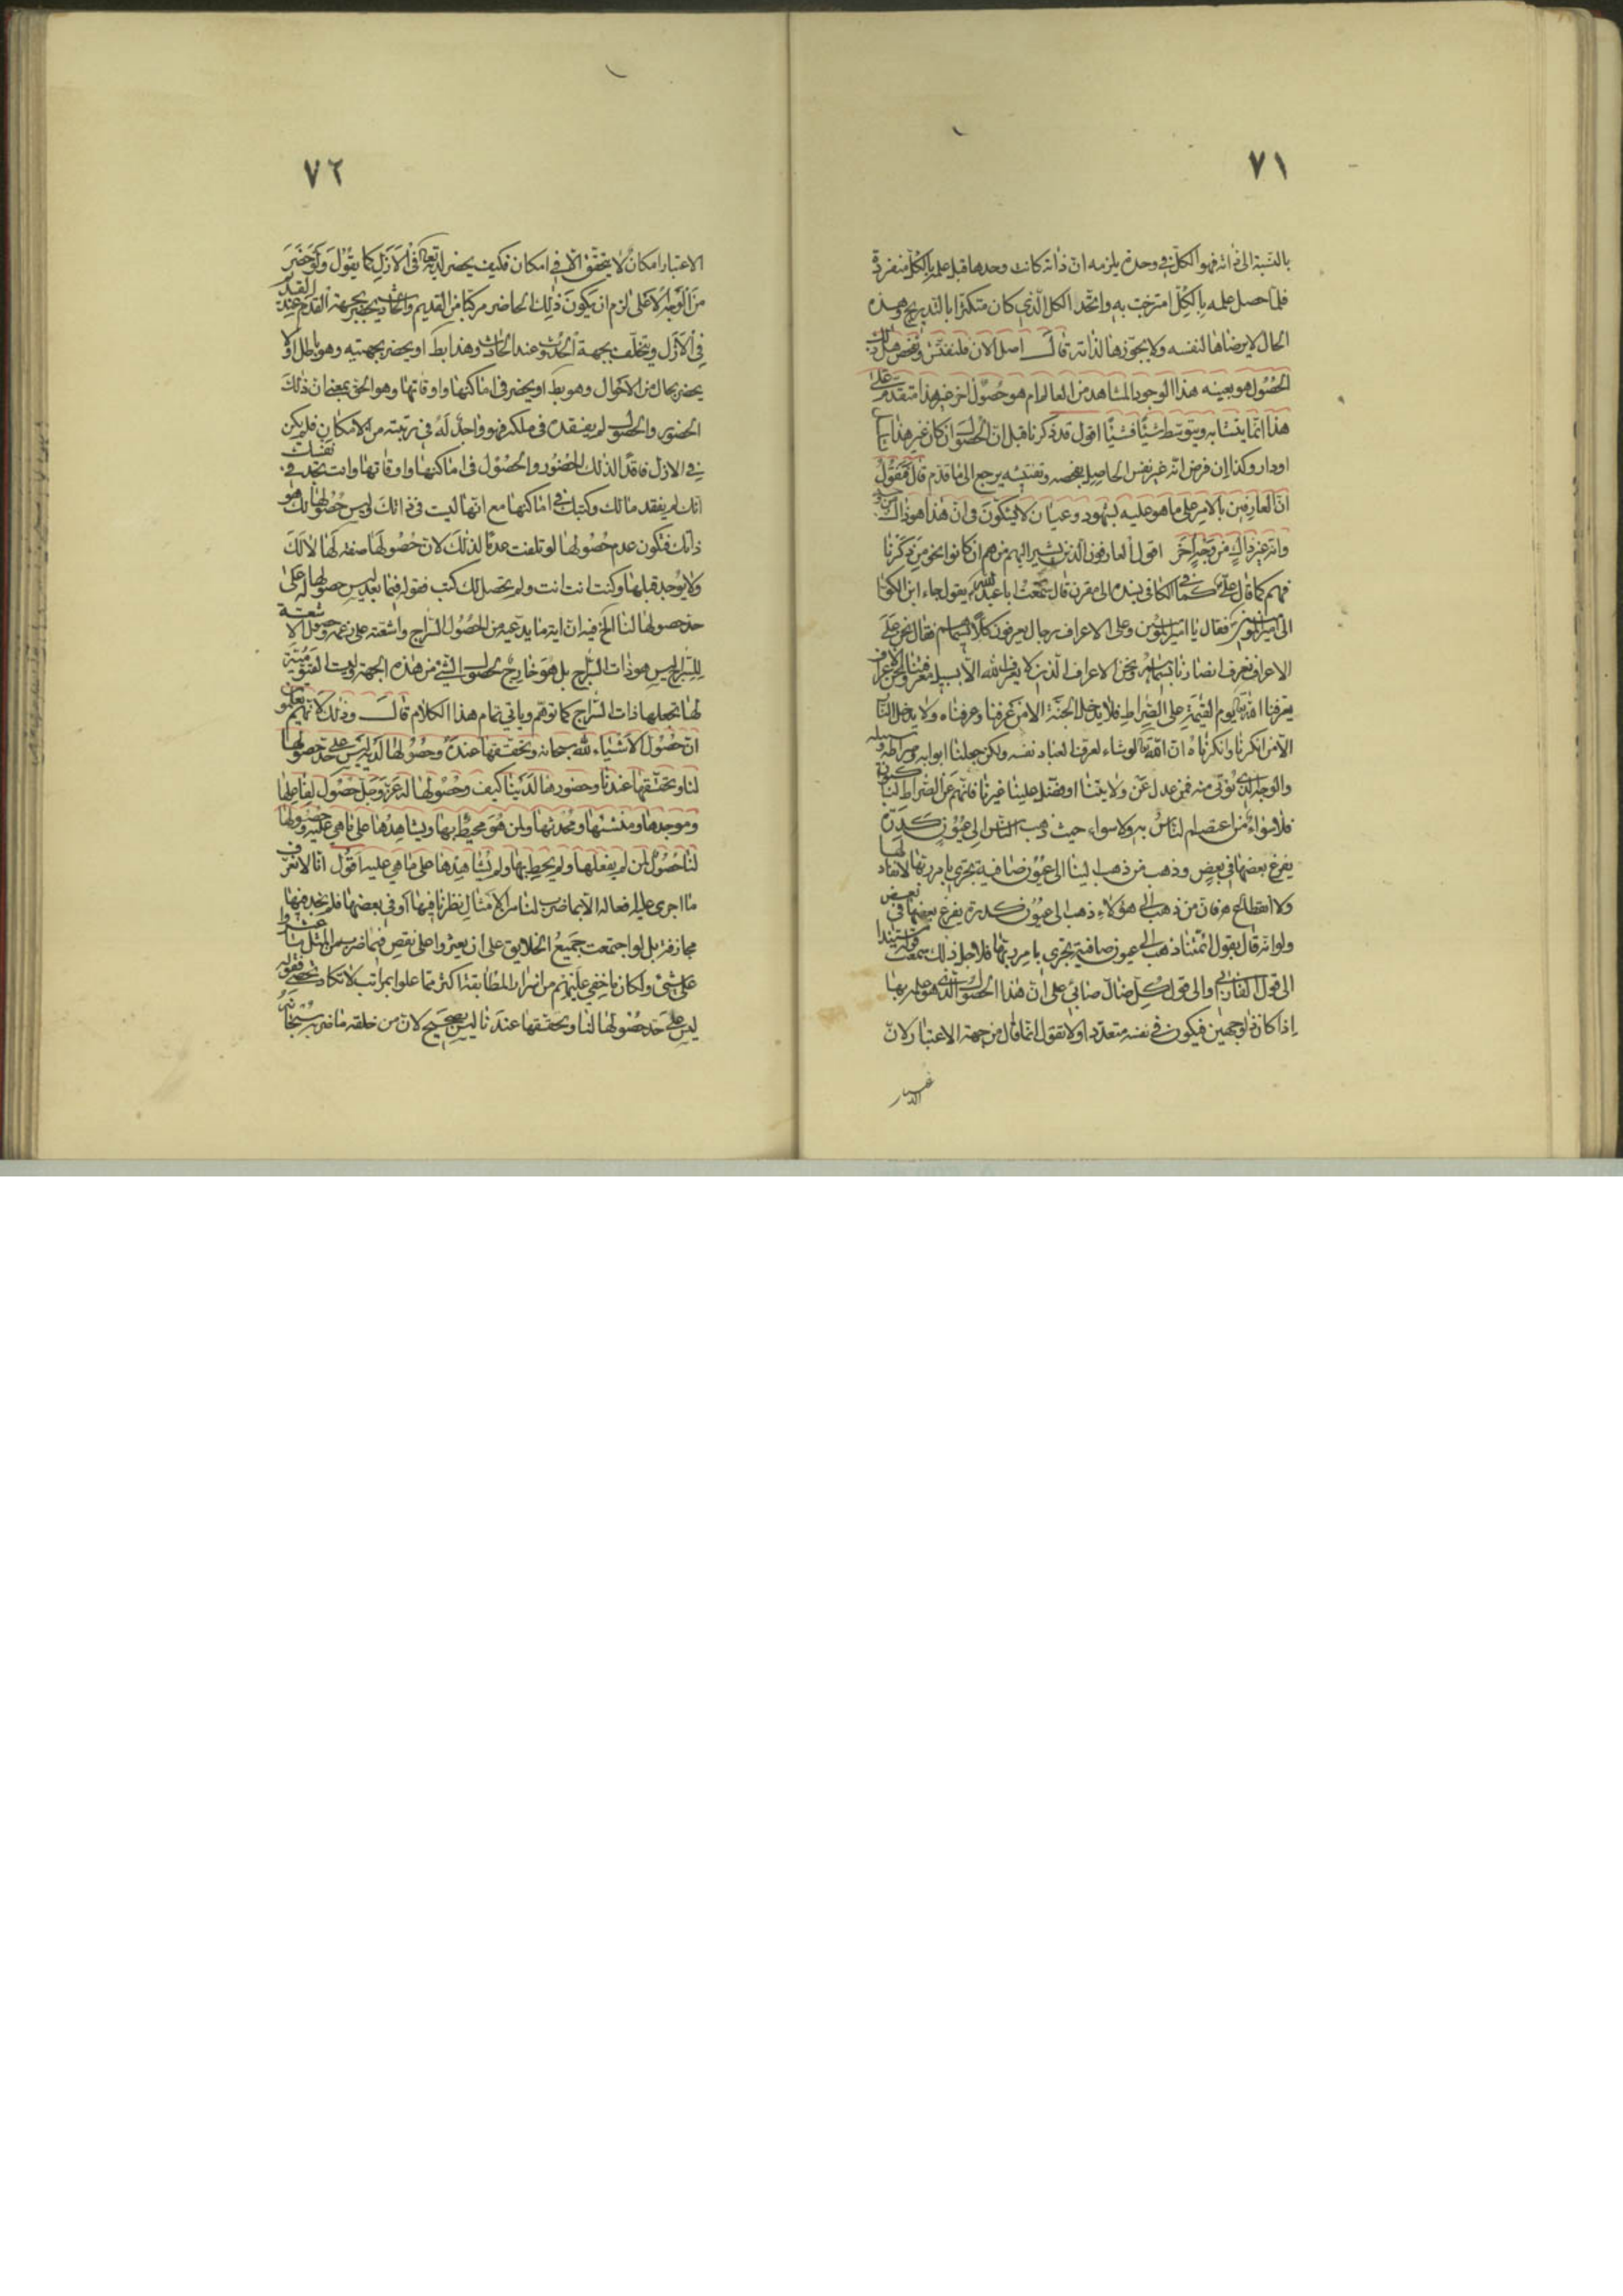 ٧١
بالنسبة الى ذاته فهو الكل في وحدة يلزمه ان ذاته كانت وحدها قبل علمه بالكل منفردة
فلما حصل علمه بالكل امتزجت به واتحد الكل الذي كان متكثرا بالتدريج وهذه
الحال لا يرضاها لنفسه ولا يجوزها لذاته قال اصل الان فلنفتش ونفحص هل ذلك
الحصول هو بعينه هذا الوجود المشاهد من العالم ام هو حصول اخر غير هذا متقدم على
هذا انما ينتسا به ويتوسط شيئا فشيئا اقول قد ذكرنا قبل ان الحصول ان كان غير هذا
اودار وكذا إن فرض انه غير نفس الحاصل بفحصه وتفتيشه يرجع الى ما قدم قال فنقول
ان العارفين بالامر على ما هو عليه بشهود وعيان لا يشكون في ان هذا هو ذاك من وجه
وانه غير ذاك من وجه اخر اقول العارفون الذين يشير اليهم من هم ان كانوا نحو من ذكرنا
فهم كما قال علي كما في الكافي بسنده الى مقرن قال سمعت ابا عبد الله يقول جاء ابن الكوا
الى امير المؤمنين فقال يا امير المؤمنين وعلى الاعراف رجال يعرفون كلا بسيماهم فقال نحن على
الاعراف نعرف انصارنا بسيماهم ونحن الاعراف الذين لا يعرف الله الا بسبيل معرفتنا ونحن الاعراف
يعرفنا الله تعالى يوم القيمة على الصراط فلا يدخل الجنة الا من عرفنا وعرفناه ولا يدخل النار
الا من انكرنا وانكرناه ان الله تعالى لو شاء لعرف العباد نفسه ولكن جعلنا ابوابه وصراطه وسبيله
والوجه الذي يؤتى منه فمن عدل عن ولايتنا او فضل علينا غيرنا فانهم عن الصراط لناكبون
فلا سواء من اعتصم الناس به ولا سواء حيث ذهب الناس الى عيون كدرة
يفرغ بعضها في بعض وذهب من ذهب الينا الى عيون صافية تجري بامر ربها لا نفاد لها
ولا انقطاع فان من ذهب الى هؤلاء ذهب الى عيون كدرة يفرغ بعضها في بعض
ولو انه قال بقول ائمتنا ذهب الى عيون صافية تجري بامر ربها فلاجل ذلك سمعت
الى قول الفارابي والى قول كل ضال صابئ على ان هذا الحصول الذي هو علمه بها
إذا كان ذو وجهين فيكون في نفسه متعددا ولا تقول انما قال من جهة الاعتبار لان
٧٢
الاعتبار امكان لا يتحقق الا في امكان فكيف يحضر لديه تعالى في الازل كما يقول ولو حضر
من الوجه الاعلى لزم ان يكون ذلك الحاضر مركبا من القديم والحادث يحضر بجهة القدم عند القديم
في الازل ويتخلف بجهة الحدوث عند الحادث وهذا بط او يحضر بجهتيه وهو باطل او لا
يحضر بحال من الاحوال وهو بط او يحضر في اماكنها واوقاتها وهو الحق بمعنى ان ذلك
الحضور والحصول لم يفقده في ملكه فهو واحد له في رتبته من الامكان فلم يكن
في الازل فاقدا لذلك الحضور والحصول في اماكنها واوقاتها وانت تجد في نفسك
انك لم يفقد مالك وكتبك في اماكنها مع انها ليست في ذاتك وليس حصولها لك هو
ذاتك فتكون عدم حصولها لو تلفت عدما لذلك لان حصولها صفة لها لا لك
ولا يوجد قبلها وكنت انت انت ولم يحصل لك كتب فقوله فيما بعد ليس حصولها له على
حد حصولها لنا الخ فيه ان اية ما يدعيه من الحصول السراج واشعته على زعمه وحصول الاشعة
للسراج ليس هو ذات السراج بل هو خارج لحصول الشئ من هذه الجهة وليست القيومية
لها تجعلها ذات السراج كما توهم وياتي تمام هذا الكلام قال وذلك لانهم يعلمون
ان حصول الاشياء لله سبحانه وتحققها عنده وحصولها لديه ليس على حد حصولها
لنا وتحققها عندنا وحضورها لدينا كيف وحصولها له عز وجل حصول لفاعلها
وموجدها ومنشئها ومحدثها ولمن هو محيط بها ويشاهدها على ما هي عليه وحصولها
لنا حصول لمن لم يفعلها ولم يحط بها ولم يشاهدها على ما هي عليه اقول انا لا نعرف
ما اجرى عليه افعاله الا بما ضرب لنا من الامثال نظرنا فيها او في بعضها فلم نجد فيها
مجازفة بل لو اجتمعت جميع الخلايق على ان يعثروا على نقص فيما ضربه من المثل ما عثروا
على شئ ولكان ما خفي عليهم من اسرار المطابقة اكثر مما علوا بمراتب لا تكاد تحصى فقوله
ليس على حد حصولها لنا وتحققها عندنا ليس بصحيح لان من خلقه ما ضربه سبحانه